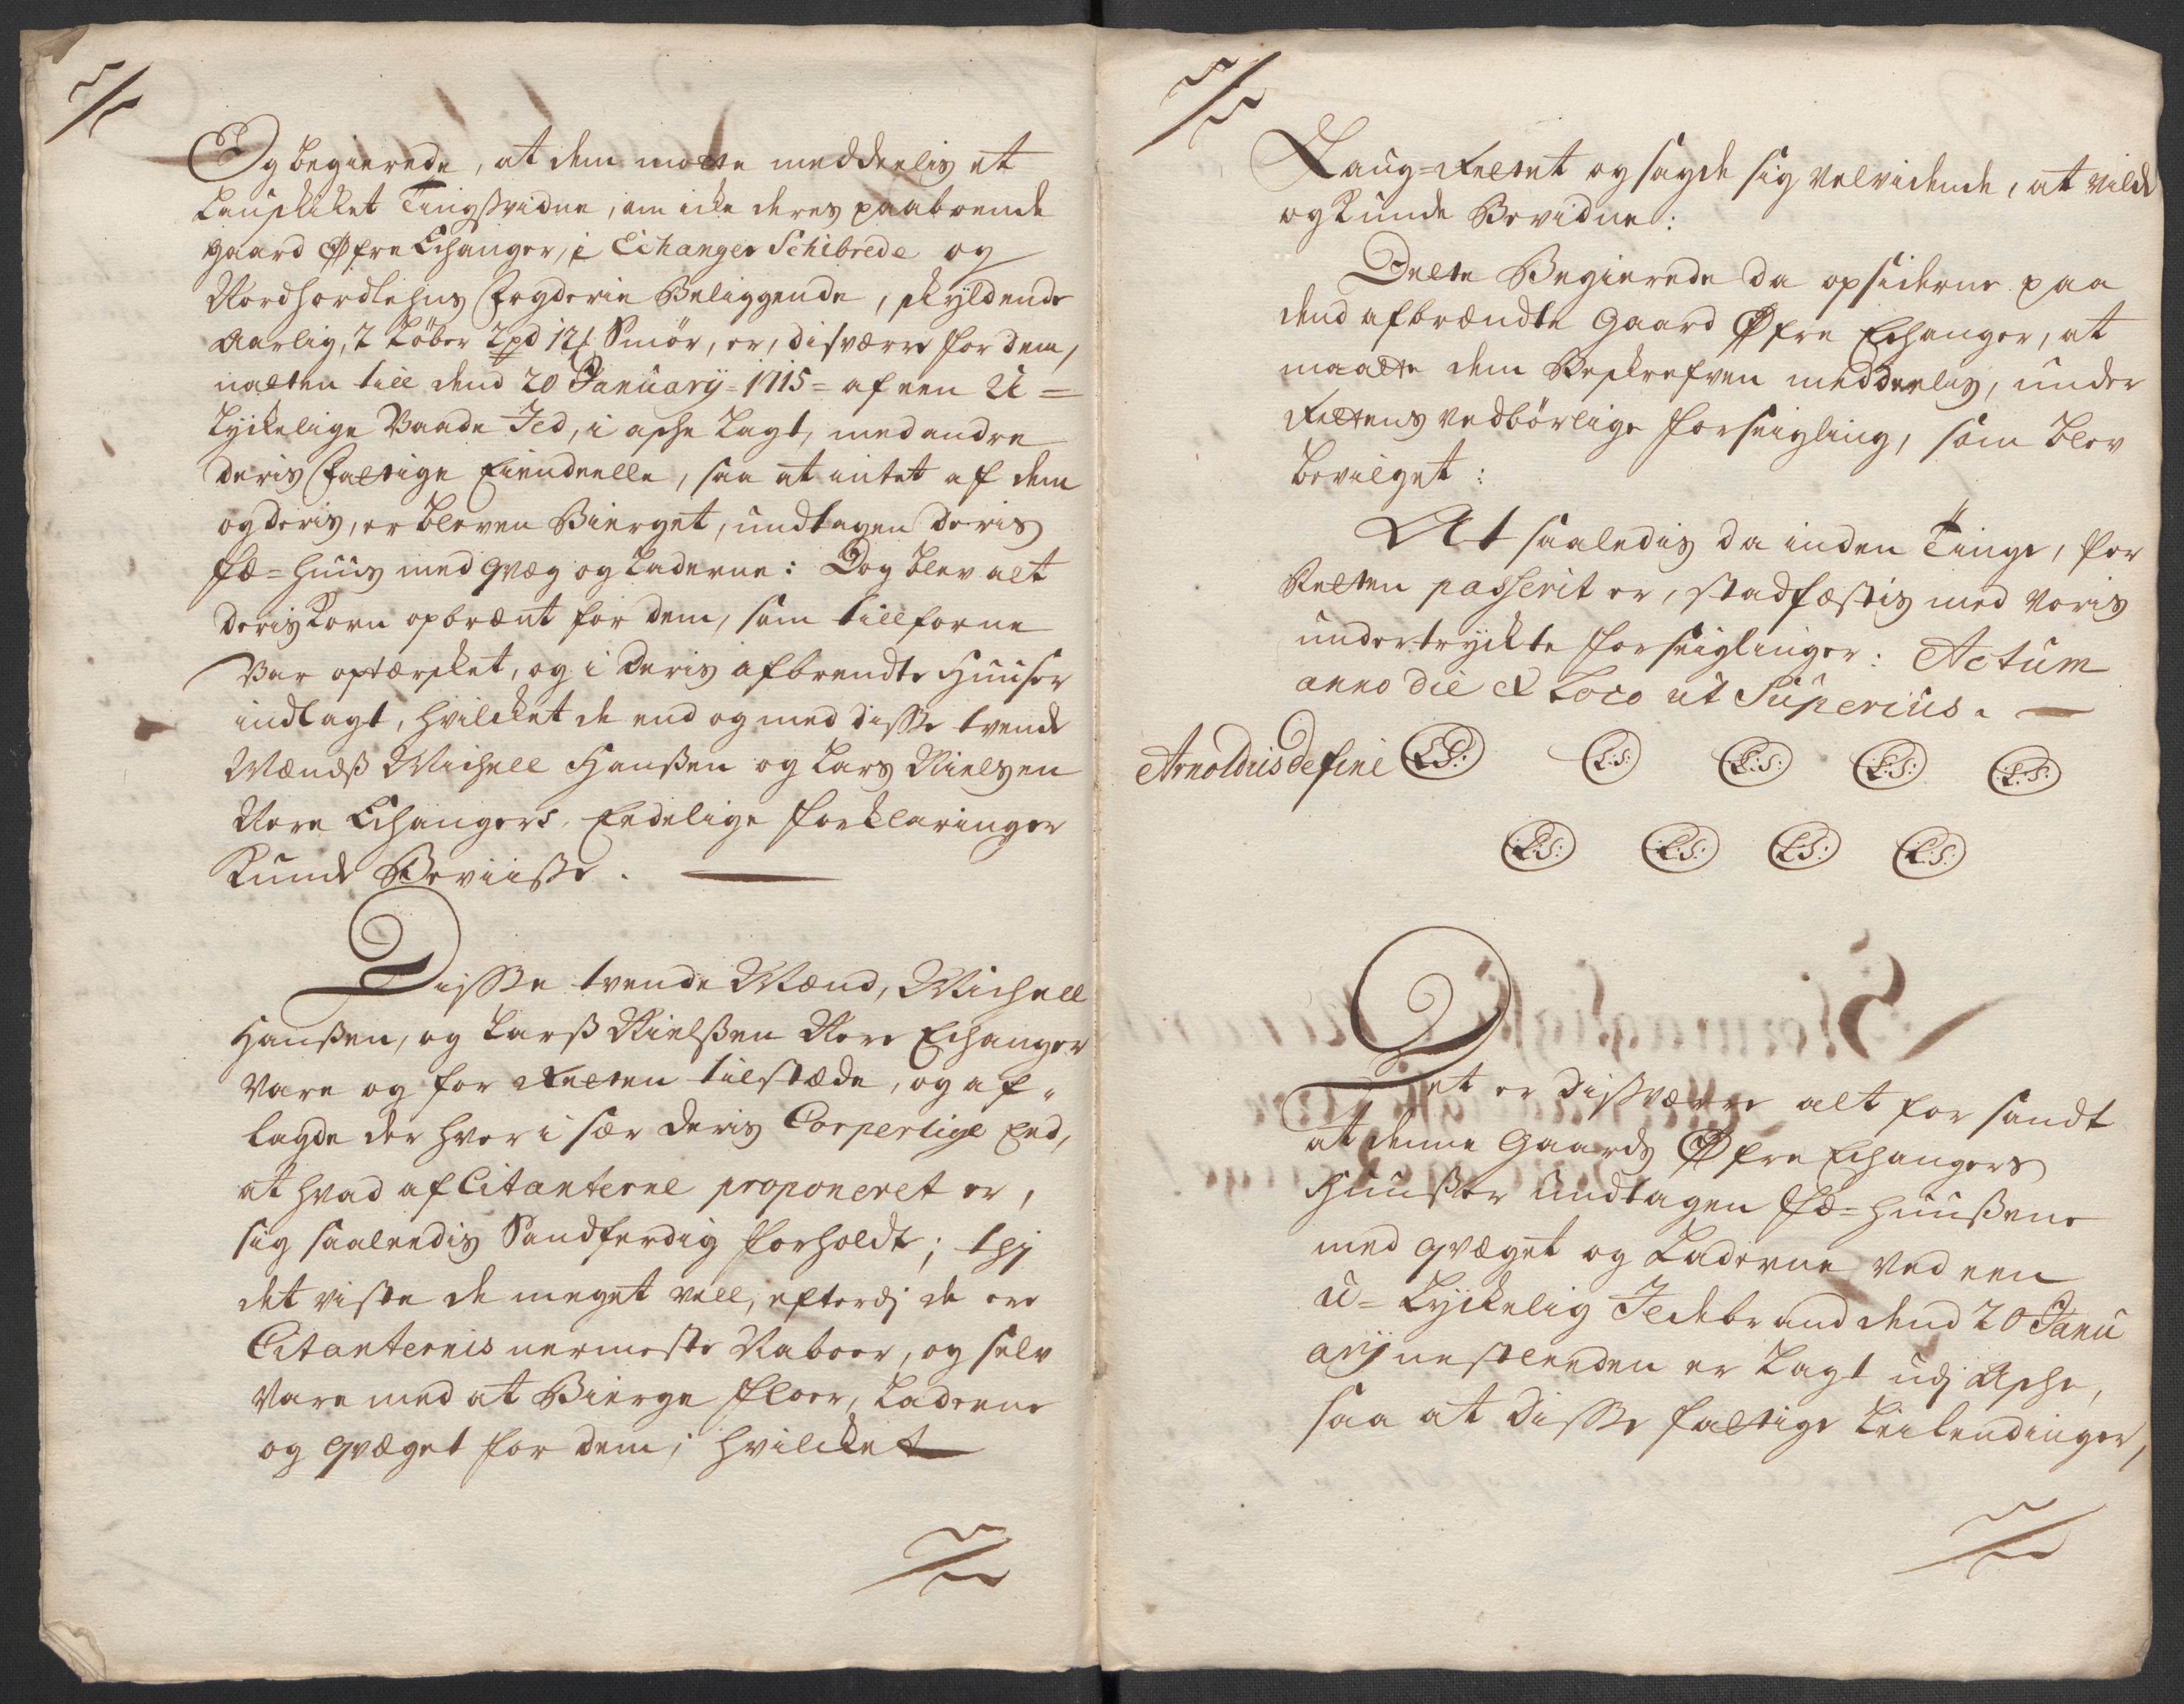 Og begierede, at dem motte meddeelis et
Laugskiket Tingsvidne, om icke deres paaboende
gaard Øfre Echanger, i Echanger Schibrede og
Nordhordlehns Fogderie Beliggende, skyldende
Aarlig, 2 Løber 2 pd 12 Smør, er, disværre for dem,
natten till dend 20 January = 1715 = af een U=
lyckelige Vaade Ild, i aske lagt, med andre
deris fattige Eiendeelle, saa at intet af dem
og deris, er bleven Bierget, undtagen deris
Fæ=huus med qvæg og Laderne: Dog blev alt
deris Korn opbrænt for dem, som tillforne
Var optærsket, og i deris afbrendte Huuser
indlagt, hvilcket de end og med disse tvende
Mænds Michell Hanßen og Lars Nielsen
Nere Echangers, Eedelige forklaringer
Kunde Beviiße.
Disse tvende Mænd, Michell
Hanßen, og Larß Nielßen Nere Echanger
Vare og for Retten tilstæde, og af-
lagde der hver i sær deris Corperlige Eed,
at hvad af Citanterne proponeret er,
sig saaleedis Sandferdig forholdt; thj
det viste de meget vell, efterdj de ere
Citanternis nermeste Naboer, og selv
Vare med at Bierge floer, Laderne
og qvæget for dem; hvilcket
Laug=Rettet og sagde sig velvidende, at vilde
og Kunde Bevidne:
Dette Begierede da opsiderne paa
dend afbrændte Gaard Øfre Echanger, at
maatte dem Beskrefven meddeelis, under
Rettens vedbørlige forseigling, som blev
bevilget:
At saaledis da inden Tinge, for
Retten passerit er, stadfæstis med voris
undertrychte forseiglinger: Actum
anno die & Loco ut Superius.
Arnoldus de fine L.S: L.S: L.S: L.S: L.S:
L.S: L.S: L.S: L.S:
Det er disværre alt for sandt
at denne Gaards Øfre Echangers
Huußer undtagen Fæ=huußene
med qvæget og Laderne ved een
u=lyckelig Ildebrand dend 20 Janu
arij nestleeden er lagt udj Aske,
saa at disse fattige Leilendinger,